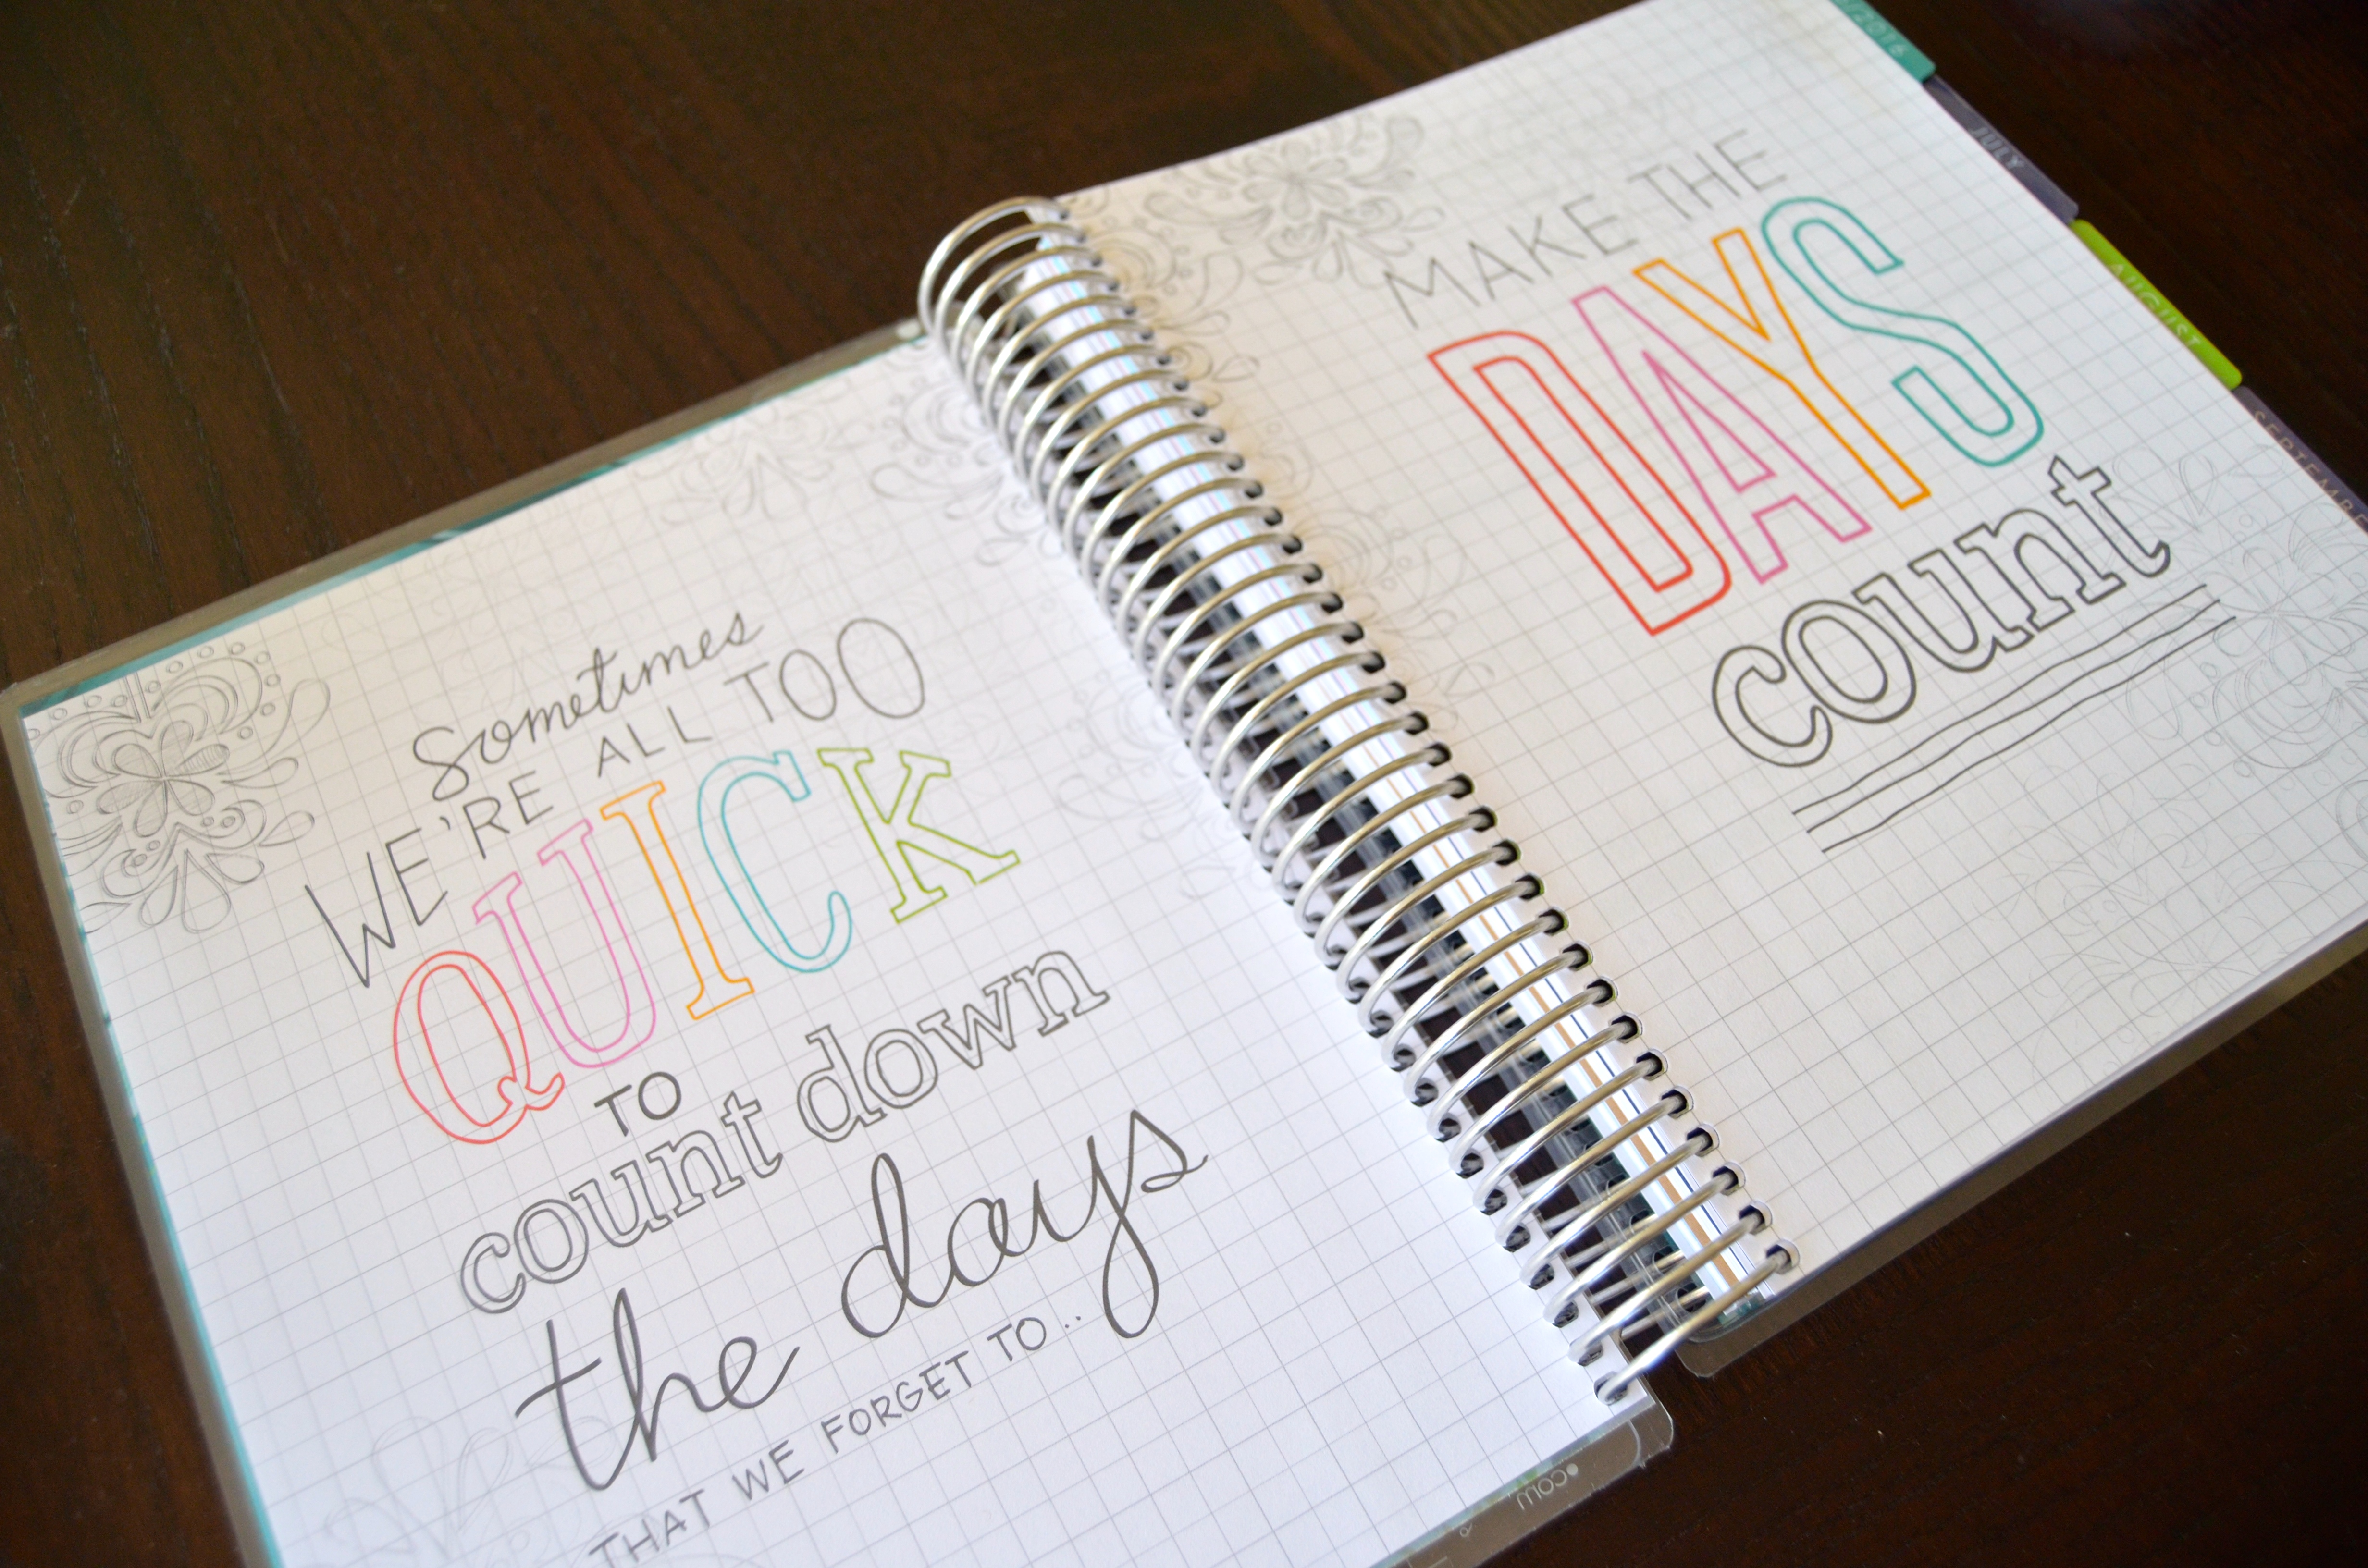 Sometimes
WE'RE ALL TOO
QUICK
TO
count down
the days
THAT WE FORGET TO..
MAKE THE
DAYS
count
2016
JULY
AUGUST
SEPTEMBE
.com